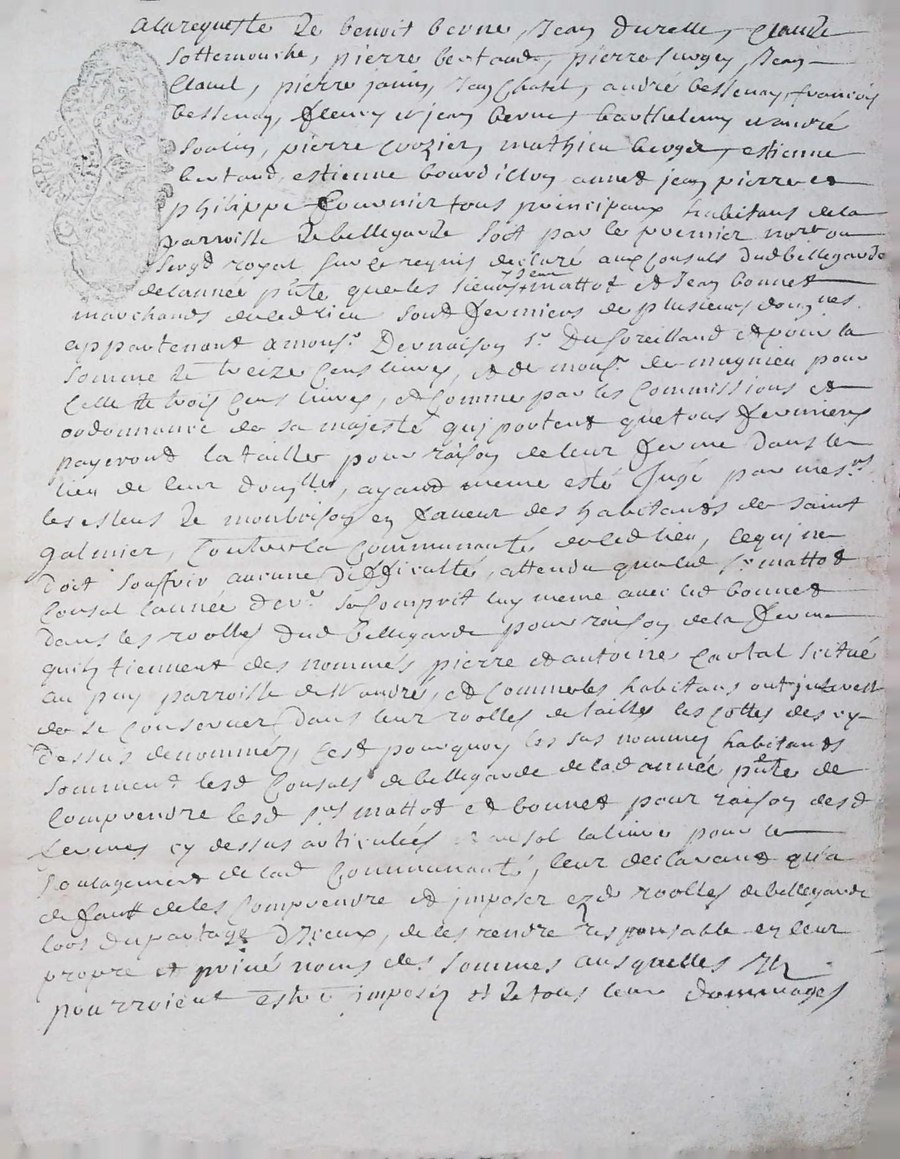 a la requeste de benoit berne, Jean durelle, Claude
sottemouche, pierre bertaud, pierre surgey, Jean
Claud, pierre janin, Jean Chatel, andré bessenay, francois
bessenay, fleury et jean berne, barthelemy et andré
soulin, pierre crozier, mathieu berger, estienne
bertaud, estienne bourdillon, annet jean pierre et
philippe Couvnier tous principaux habitans de la
parroisse de bellegarde soit par le premier
sergt royal sur ce requis declaré aux Consuls dud bellegarde
de lannée pnte que les sieurs Jean mattot et Jean bonnet
marchands dud lieu sont fermiers de plusieurs domgnes
appartenant a monsr. Dernaison sr. Du soreillaud et pour la
somme de treize Cens livres, et de monsr. de magnieu pour
Celle de trois Cens livres, et Comme par les Commissions et
ordonnance de sa majesté qui portent que tous fermiers
payeront la tailles pour raison de leur ferme dans le
lieu de leur domlle, ayant meme esté Jugé par mesrs.
les esleus de monbrison en faveur des habitands de saint
galmier, Contre la Communauté dud lieu, Ce qui ne
doit souffrir aucune difficulté, attendu que led sr mattot
Consul lannée derr. se Comprit luy meme avec led bonnet
dans les roolles dud bellegarde pour raison de la ferme
quils tiennent des nommés pierre et antoine Cartal scitué
au puy parroisse de st andré, et Comme les habitans ont interest
de se Conserver dans leur roolles de tailles les Cottes des cy
dessus denommez, Cest pourquoy les sus nommez habitands
somment lesd Consuls de bellegarde de lad année pnte de
Comprendre lesd srs mattot et bonnet pour raison desd
fermes cy dessus articulées au sol la livre pour le
soulagement de lad Communauté, leur declarant qua
defaut de les Comprendre et imposer ezd roolles de bellegarde
lors du partage diceux, de les rendre responsable en leur
propre et privé noms des sommes ausquelles Ils
pourroient estre imposez et de tous leurs dommages